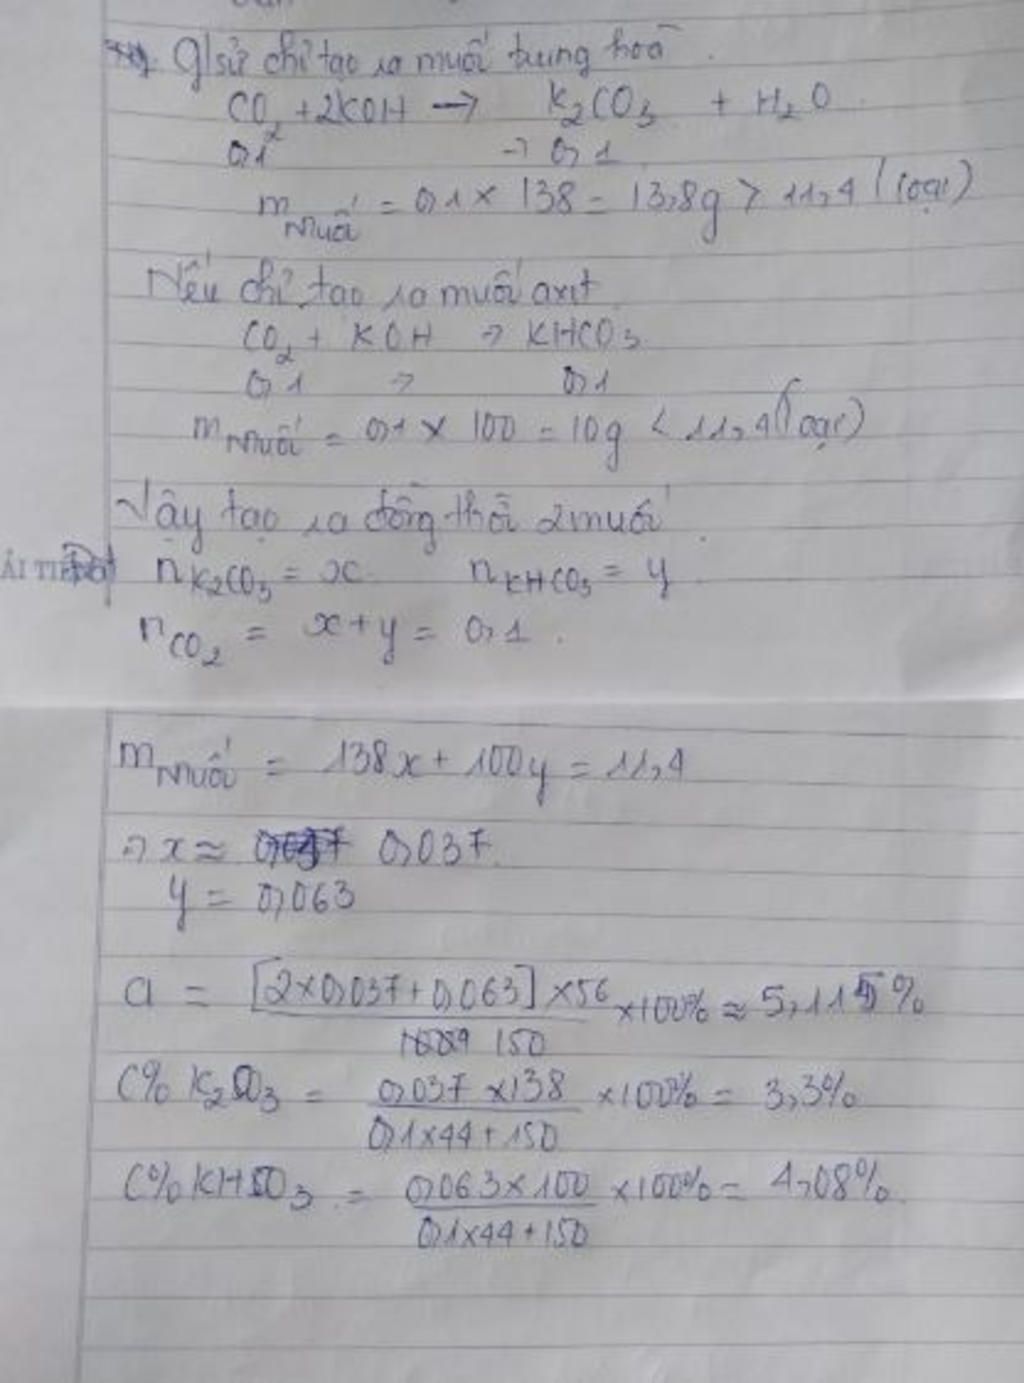 Giả sử chỉ tạo ra muối trung hoà.
CO2 + 2KOH → K2CO3 + H2O
0,1 → 0,1
m muối = 0,1 × 138 = 13,8g > 11,4 (loại)
Nếu chỉ tạo ra muối axit
CO2 + KOH → KHCO3
0,1 → 0,1
m muối = 0,1 × 100 = 10g < 11,4 (loại)
Vậy tạo ra đồng thời 2 muối.
ẢI TI
n K2CO3 = x n KHCO3 = y
n CO2 = x + y = 0,1.
m muối = 138x + 100y = 11,4
→ x ≈ 0,037
y = 0,063
a = [2×0,037+0,063] ×56 / 150 ×100% ≈ 5,115%
C% K2CO3 = 0,037 ×138 / 0,1×44 + 150 ×100% = 3,3%
C% KHCO3 = 0,063×100 / 0,1×44 + 150 ×100% = 4,08%.